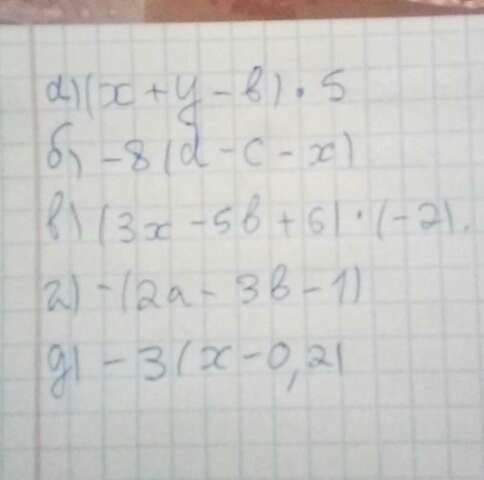 а) (x + y - в) · 5
б) -8 (d - c - x)
в) (3x - 5в + 6) · (-2).
г) -(2a - 3в - 1)
д) -3 (x - 0,2)